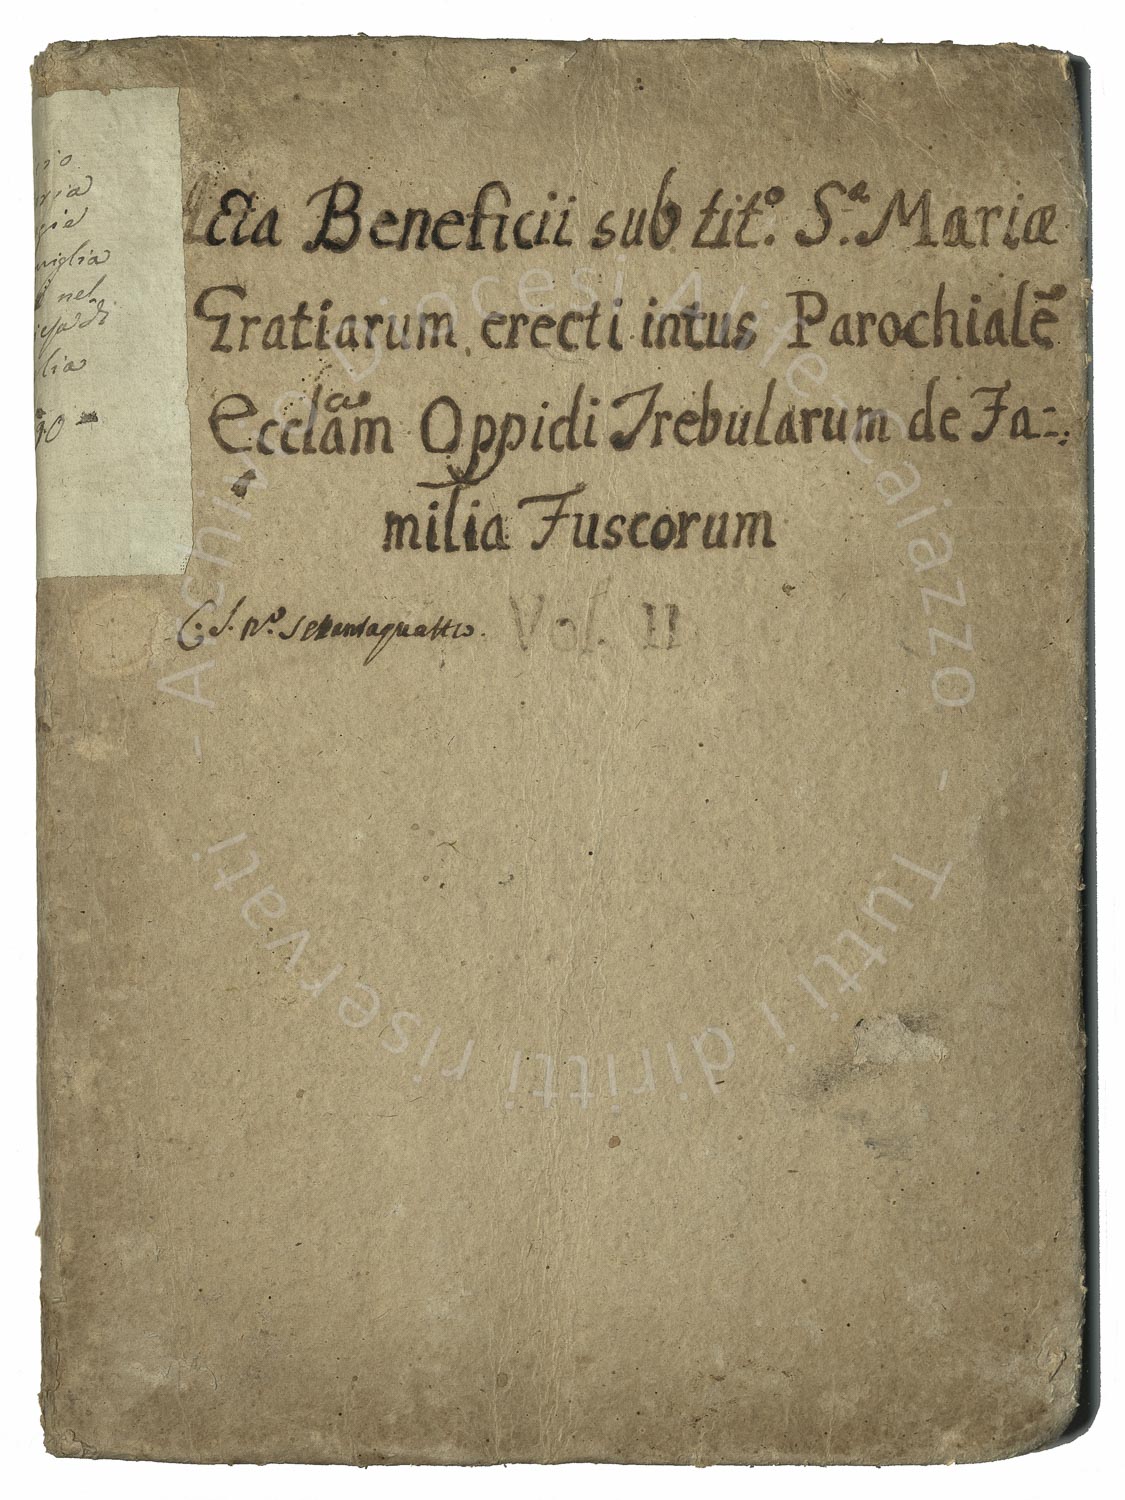 Acta Beneficii sub tit.º S.ª Mariæ
Gratiarum erecti intus Parochialẽ
Eccl̃am Oppidi Trebularum de Fa=
milia Fuscorum
C. S. nº. settantaquattro.
Vol. II
nel
Archivio Diocesi Alife-Caiazzo - Tutti i diritti riservati -